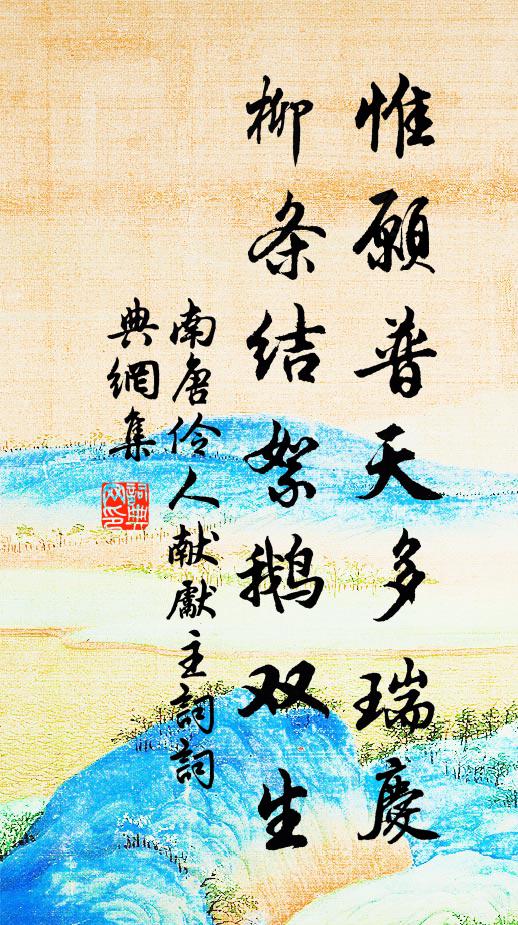 惟願普天多瑞慶
柳条结絮鹅双生
南唐伶人献獻主詞詞
典網集
詞典
网印